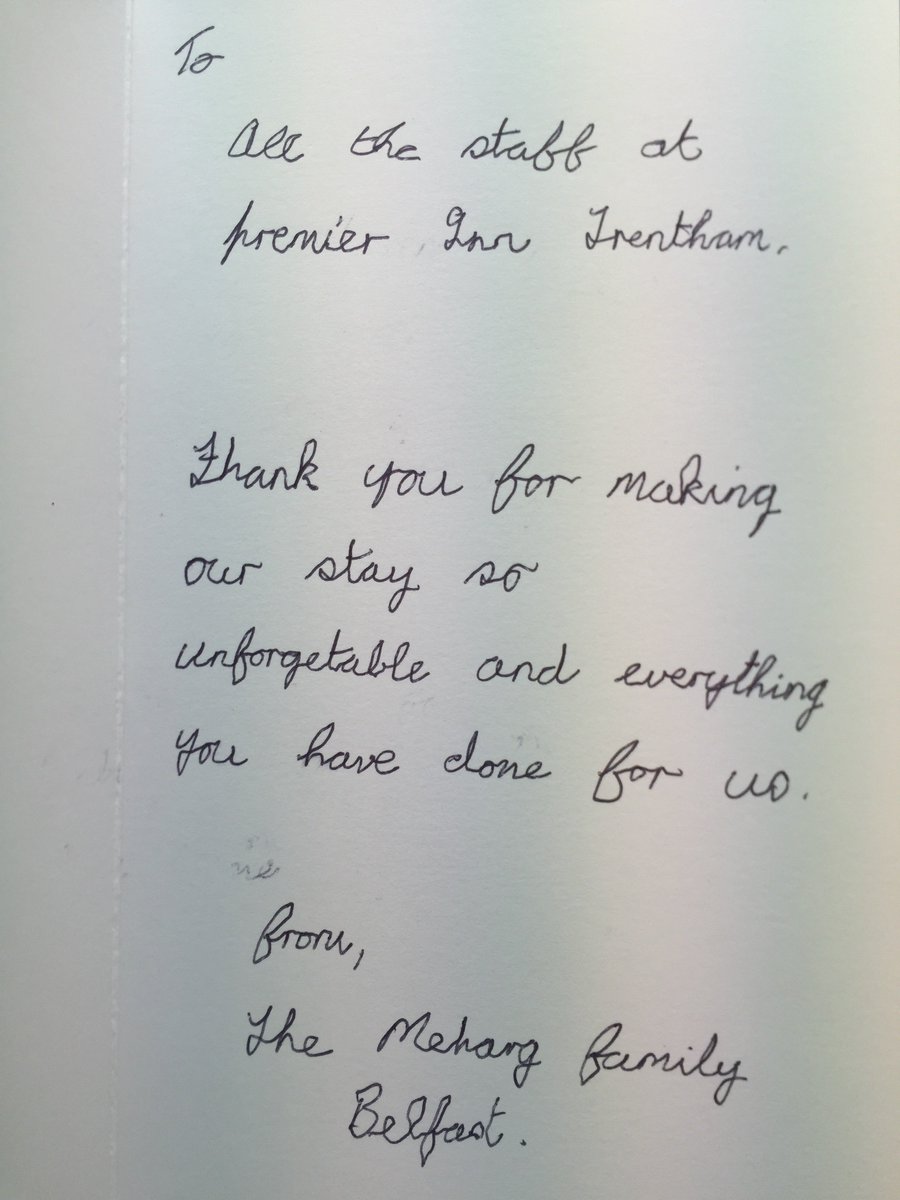 To
All the staff at
premier Inn Trentham.
Thank you for making
our stay so
unforgetable and everything
you have done for us.
from,
The Meharg family
Belfast.